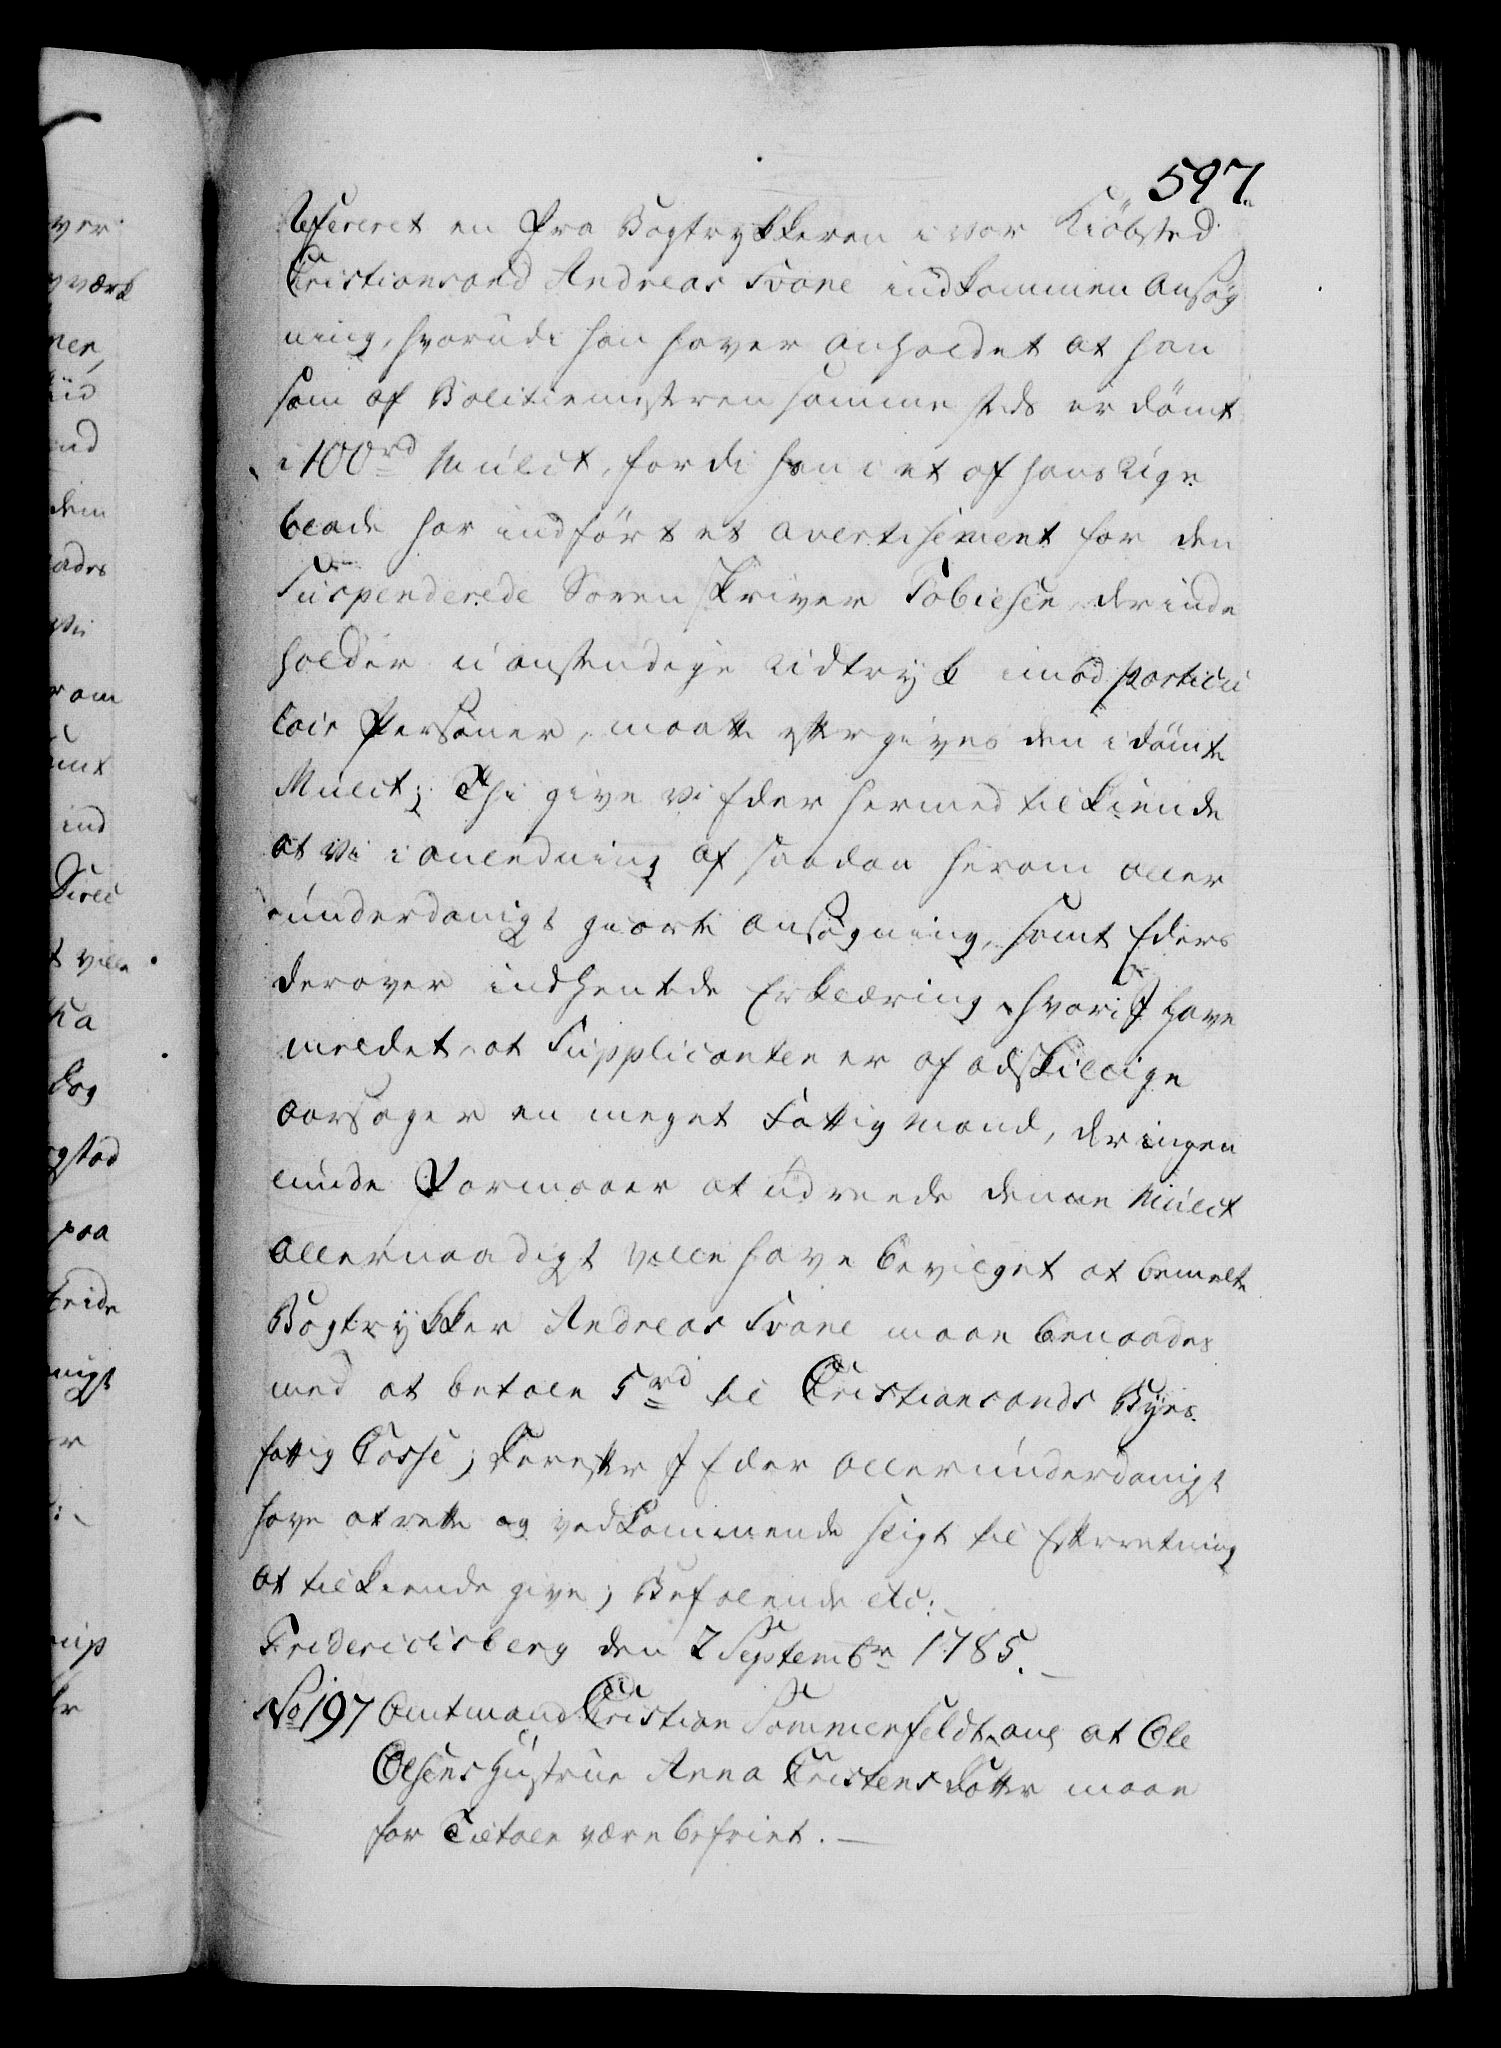 597.
Refereret en fra Bogtrykkeren i vor Kiöbsted
Christiansand Andreas Svane indkommen Ansøg
ning, hvorudi han haver anholdet at han
som af Politiemesteren sammesteds er dömt
i 100 rd Mulct, fordi han i et af hans Uge
blade har indført et avertisement for den
Suspenderede Sorenskriver Tobiesen, der inde
holder uanstendige Udtryk imod particu
lair Personer, maatte eftergives den idömte
Mulct; Thi give vi Eder hermed tilkiende
at vi i anledning af saadan herom aller
underdanigst giorte ansøgning, samt Eders
derover indhentede Erklæring, hvori I have
meldet, at Supplicanten er af adskillige
Aarsager en meget Fattig Mand, der ingen
lunde Formaaer at udreede denne Mulct
allernaadigst ville have bevilget at bemelte
Bogtrykker Andreas Svane maae benaades
med at betale 5 rd til Christiansands Byes
fattig Casse; Derefter I Eder allerunderdanigst
have at rette og vedkommende sligt til Efterretning
at tilkiende give; Befalende etc:
Friderichsberg den 2 Septembr 1785.
No 197 Amtmand Christian Sommerfeldt, ang at Ole
Olsens Hustrue Anna Christens Datter maae
for Tiltale være befriet.